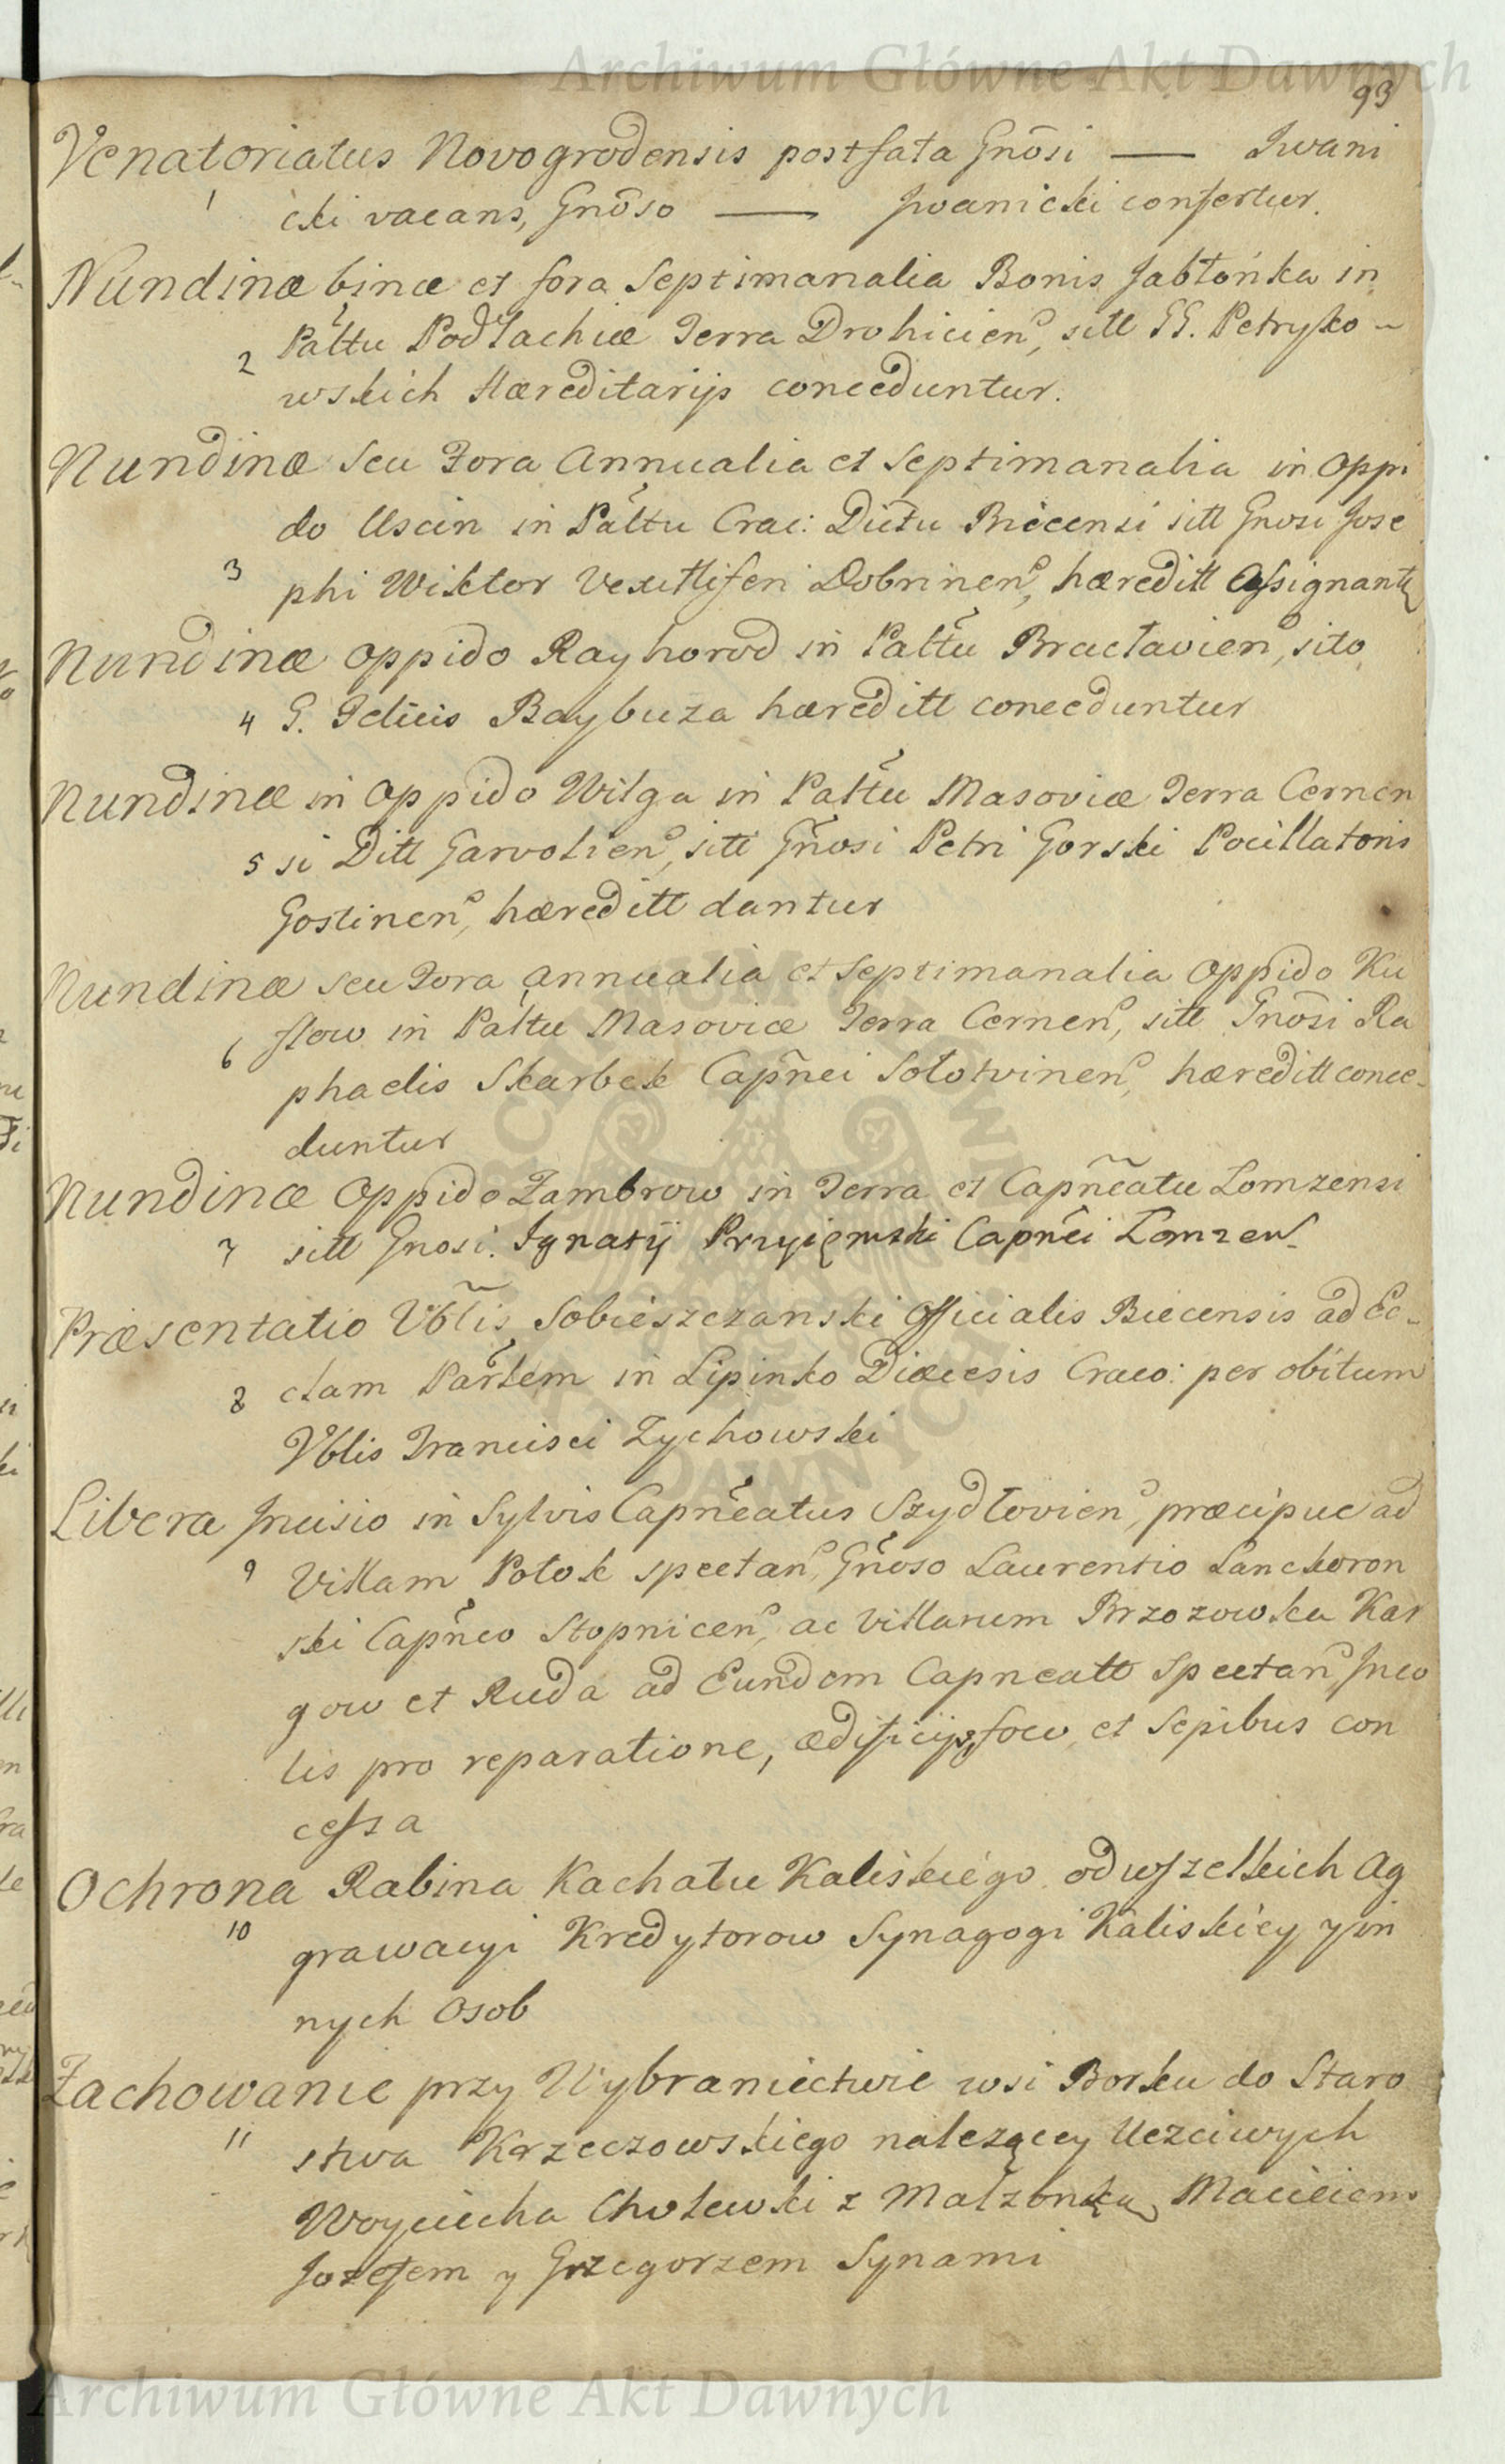 Archiwum Główne Akt Dawnych
93
Venatoriatus Novogrodensis post fata Gnõsi — Iwani
1 cki vacans, Gnõso — Jwanicki confertur.
Nundinæ binæ et fora Septimanalia Bonis Jabłońka in
2 Paltu Podlachiæ Terra Drohicien, sitt GG. Petrysko-
wskich Hæreditarijs conceduntur.
Nundinæ seu Fora Annualia et Septimanalia in Oppi
do Uscin in Paltu Crac: Dictu Biecensi sitt Gnosi Jose
3 phi Wiktor Vexilliferi Dobrinen, hæreditt Assignantr
Nundinæ Oppido Rayhorod in Paltu Braclavien, sito
4 G. Felicis Baybuza hæreditt conceduntur
Nundinæ in Oppido Wilga in Paltu Masoviæ Terra Cernen
5 si Ditt Garvolien, sitt Gñosi Petri Gorski Pocillatoris
Gostinen, hæreditt dantur
Nundinæ seu Fora Annualia et Septimanalia Oppido Ku
6 flow in Paltu Masoviæ Terra Cernen, sitt Gnõsi Ra
phaelis Skarbek Capñei Sołotvinen, hæreditt conce-
duntur
Nundinæ Oppido Zambrow in Terra et Capñeatu Lomzensi
7 sitt Gnosi. Ignatij Przyięmski Capñei Lomzen.
Præsentatio Vbl̃is Sobieszczanski Officialis Biecensis ad Ec-
8 clam Partem in Lipinko Diæcesis Craco: per obitum
Vblis Francisci Zychowski
Libera Incisio in Sylvis Capñeatus Szydłovien, præcipue ad
9 Villam Potok spectan, Gñoso Laurentio Lanckoron
ski Capñeo Stopnicen, ac Villarum Brzozowka Kar
gow et Ruda ad Eundem Capneatt spectan, Inco
lis pro reparatione, ædificijs, foco et Sepibus con
cessa
Ochrona Rabina Kachału Kaliskiego od wszelkich Ag
10 grawacyi Kredytorow Synagogi Kaliskiey y in
nych Osob
Zachowanie przy Wybraniectwie wsi Borku do Staro
11 stwa Krzeczowskiego nalezącey Uczciwych
Woyciecha Cholewki z Małzonką, Macieiem
Jozefem y Grzegorzem Synami
Archiwum Główne Akt Dawnych